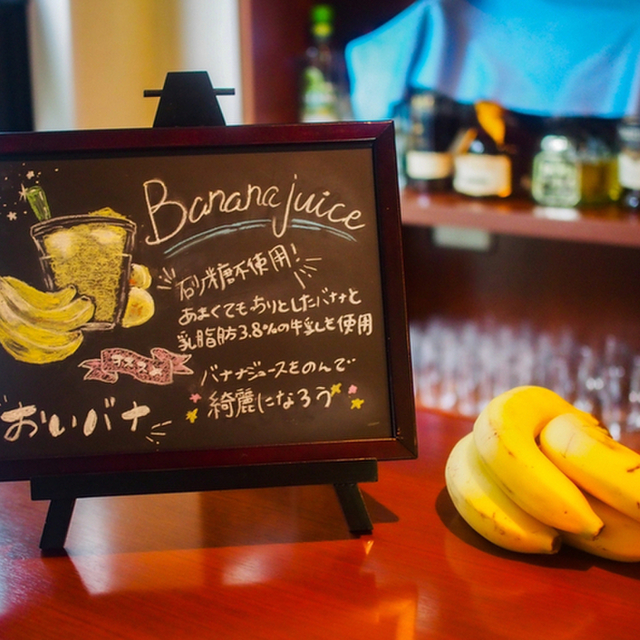 Banana juice
砂糖不使用!
あまくてもっちりとしたバナナと
乳脂肪3.8%の牛乳を使用
バナナジュースをのんで
綺麗になろう
おいバナ